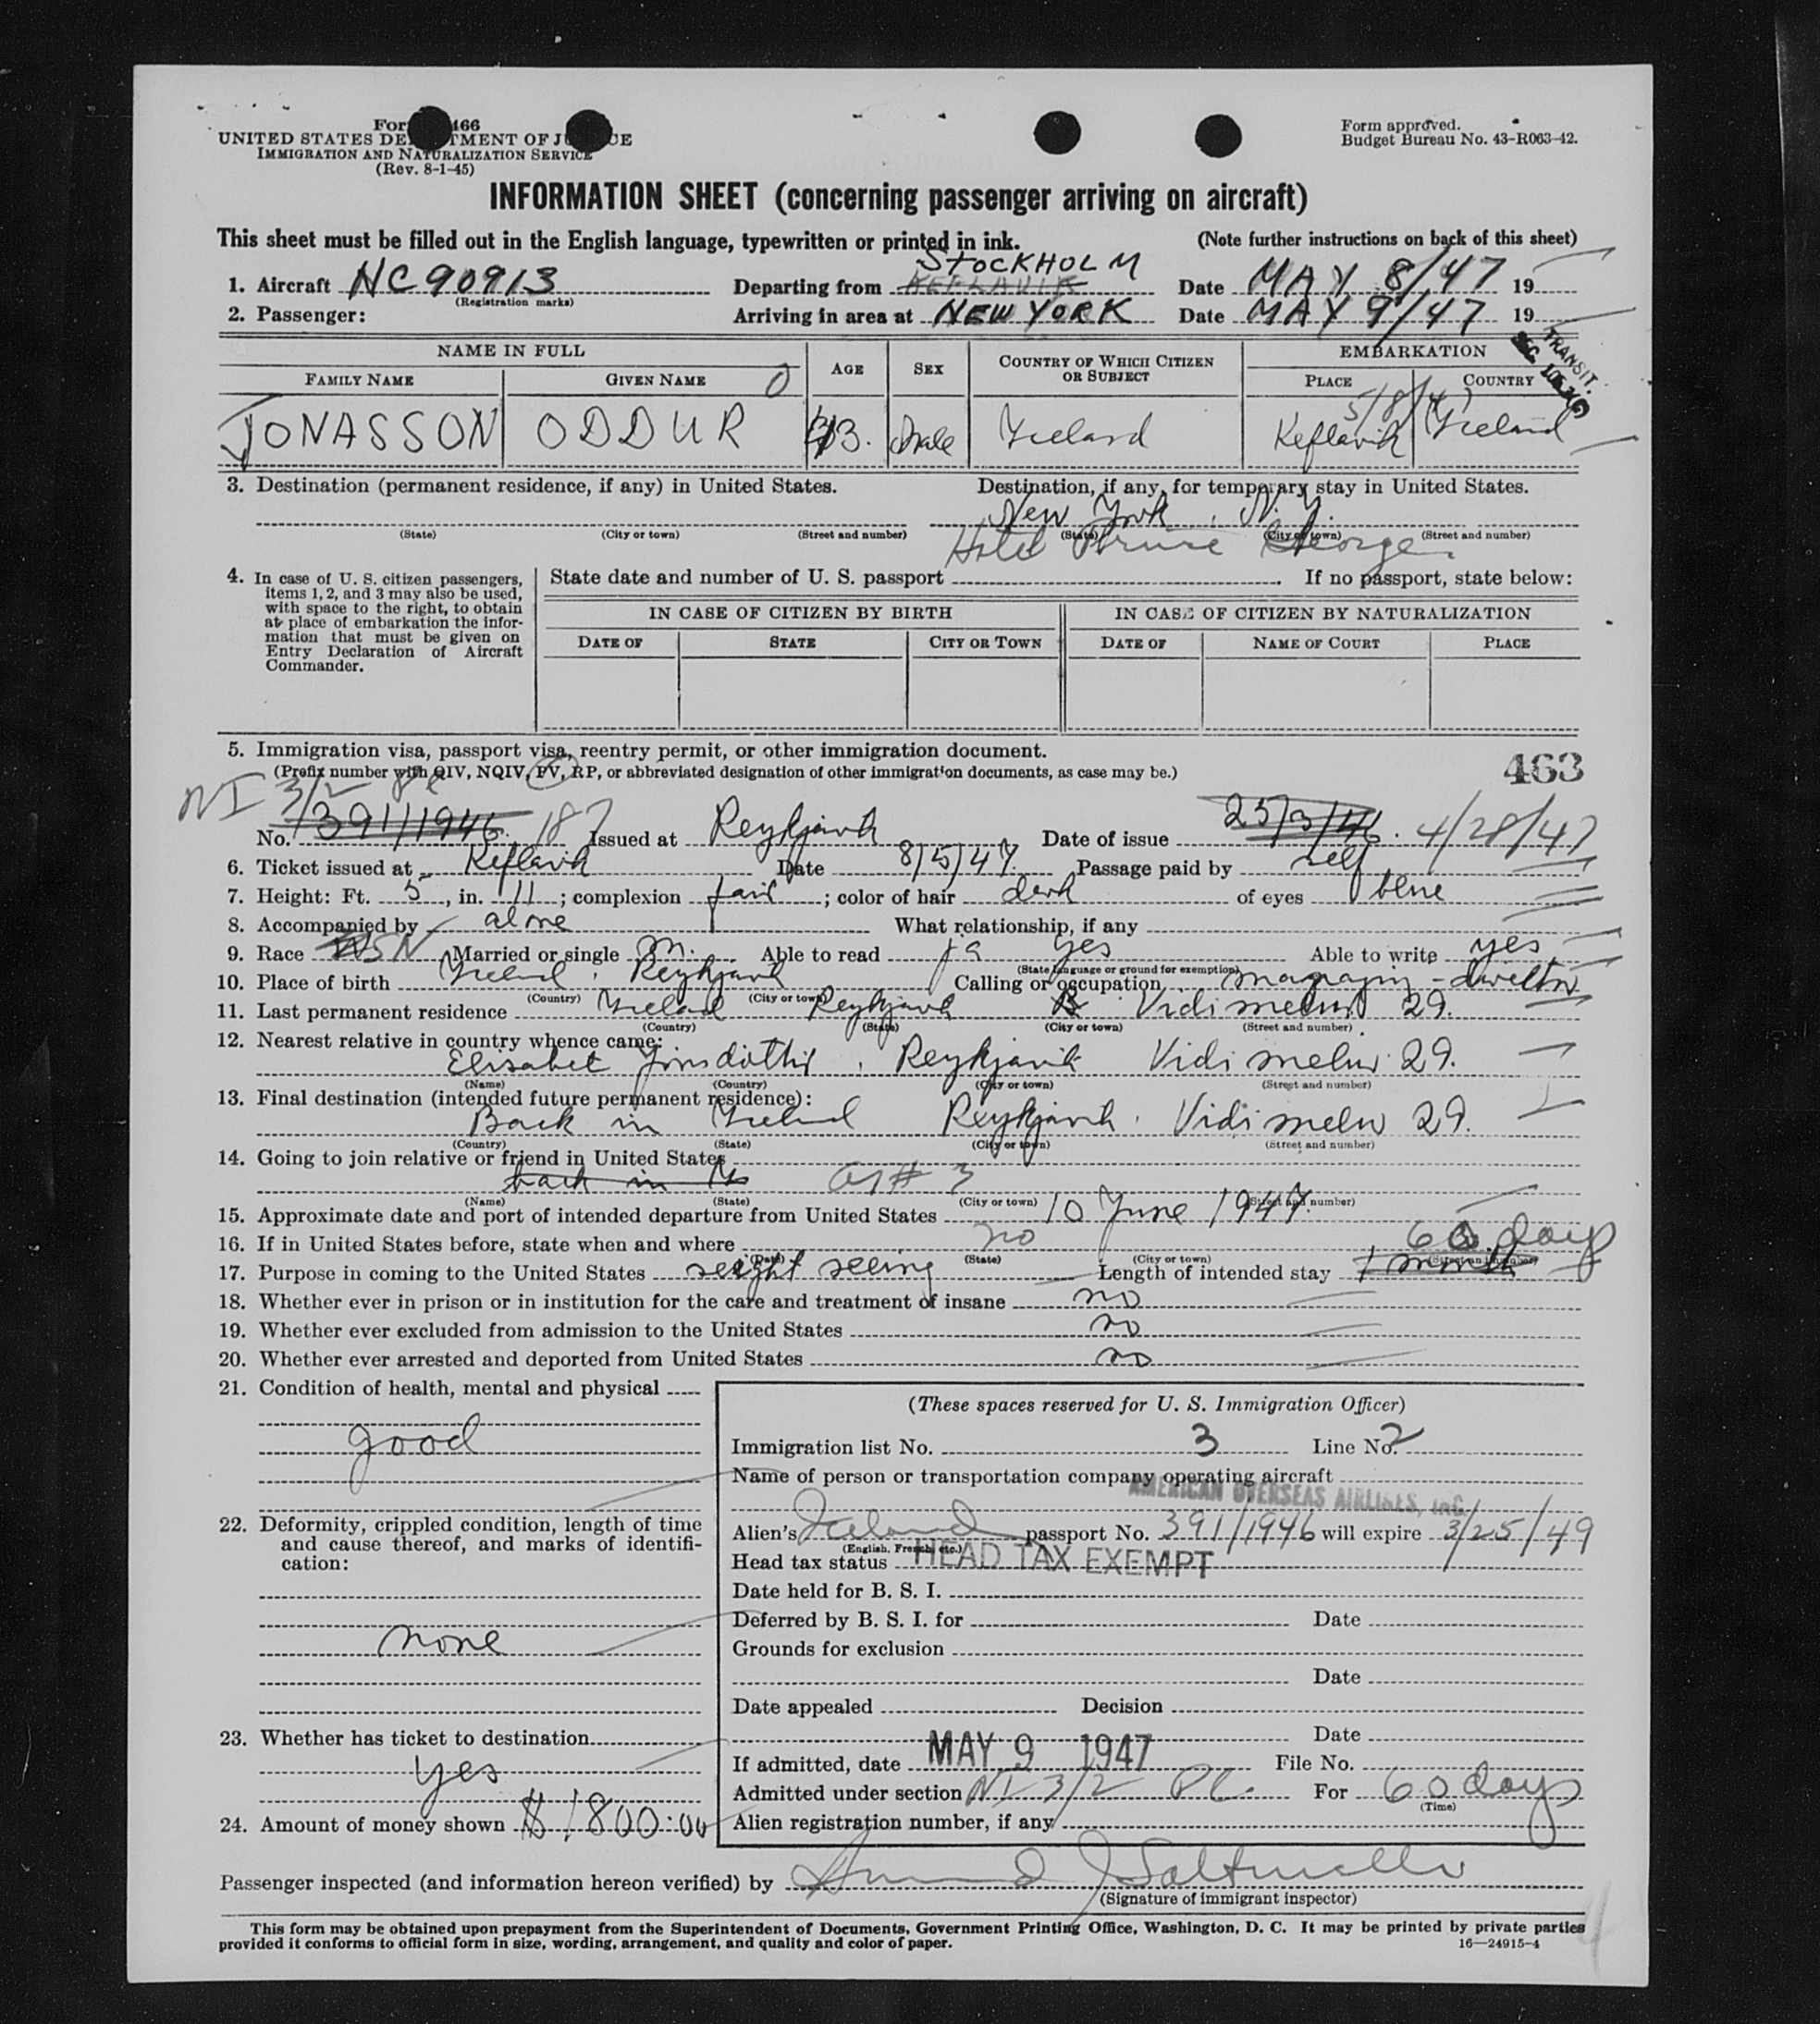 Form 466
UNITED STATES DEPARTMENT OF JUSTICE
IMMIGRATION AND NATURALIZATION SERVICE
(Rev. 8-1-45)
Form approved.
Budget Bureau No. 43-R063-42.
INFORMATION SHEET (concerning passenger arriving on aircraft)
This sheet must be filled out in the English language, typewritten or printed in ink. (Note further instructions on back of this sheet)
STOCKHOLM
1. Aircraft NC90913 Departing from KEFLAVIK Date MAY 8/47 19
(Registration marks)
2. Passenger: Arriving in area at NEW YORK Date MAY 9/47 19
TRANSIT.
NAME IN FULL AGE SEX COUNTRY OF WHICH CITIZEN OR SUBJECT EMBARKATION
FAMILY NAME GIVEN NAME O PLACE COUNTRY
5/8/47
JONASSON ODDUR 43. Male Iceland Keflavik Iceland
3. Destination (permanent residence, if any) in United States. Destination, if any, for temporary stay in United States.
New York, N.Y.
(State) (City or town) (Street and number) (State) (City or town) (Street and number)
Hotel Prince George.
4. In case of U. S. citizen passengers, items 1, 2, and 3 may also be used, with space to the right, to obtain at place of embarkation the information that must be given on Entry Declaration of Aircraft Commander.
State date and number of U. S. passport . If no passport, state below:
IN CASE OF CITIZEN BY BIRTH IN CASE OF CITIZEN BY NATURALIZATION
DATE OF STATE CITY OR TOWN DATE OF NAME OF COURT PLACE
5. Immigration visa, passport visa, reentry permit, or other immigration document.
(Prefix number with QIV, NQIV, PV, RP, or abbreviated designation of other immigration documents, as case may be.) 463
NI 3/2
No. 391/1946. 187 Issued at Reykjavik Date of issue 25/3/46. 4/28/47
6. Ticket issued at Keflavik Date 8/5/47. Passage paid by self
7. Height: Ft. 5, in. 11; complexion fair; color of hair dark of eyes blue
8. Accompanied by alone What relationship, if any
9. Race SN Married or single m. Able to read yes Able to write yes
(State language or ground for exemption)
10. Place of birth Iceland, Reykjavik Calling or occupation managing-director
(Country) (City or town)
11. Last permanent residence Iceland Reykjavik Vidimelur 29.
(Country) (State) (City or town) (Street and number)
12. Nearest relative in country whence came:
Elisabet Jonsdottir, Reykjavik Vidimelur 29.
(Name) (Country) (City or town) (Street and number)
13. Final destination (intended future permanent residence):
Back in Iceland Reykjavik. Vidimelur 29.
(Country) (State) (City or town) (Street and number)
14. Going to join relative or friend in United States
back in # 3
(Name) (State) (City or town) (Street and number)
15. Approximate date and port of intended departure from United States 10 June 1947.
16. If in United States before, state when and where no 60 days
(Date) (State) (City or town) (Street and number)
17. Purpose in coming to the United States seight seeing Length of intended stay 1 month
18. Whether ever in prison or in institution for the care and treatment of insane no
19. Whether ever excluded from admission to the United States no
20. Whether ever arrested and deported from United States no
21. Condition of health, mental and physical
good
22. Deformity, crippled condition, length of time and cause thereof, and marks of identification:
none
23. Whether has ticket to destination
yes
24. Amount of money shown $1800:00
(These spaces reserved for U. S. Immigration Officer)
Immigration list No. 3 Line No. 2
Name of person or transportation company operating aircraft
AMERICAN OVERSEAS AIRLINES, INC.
Alien's Iceland passport No. 391/1946 will expire 3/25/49
(English, French, etc.)
Head tax status HEAD TAX EXEMPT
Date held for B. S. I.
Deferred by B. S. I. for Date
Grounds for exclusion
Date
Date appealed Decision
Date
If admitted, date MAY 9 1947 File No.
Admitted under section NI 3/2 For 60 days
(Time)
Alien registration number, if any
Passenger inspected (and information hereon verified) by
(Signature of immigrant inspector)
This form may be obtained upon prepayment from the Superintendent of Documents, Government Printing Office, Washington, D. C. It may be printed by private parties
provided it conforms to official form in size, wording, arrangement, and quality and color of paper. 16—24915-4